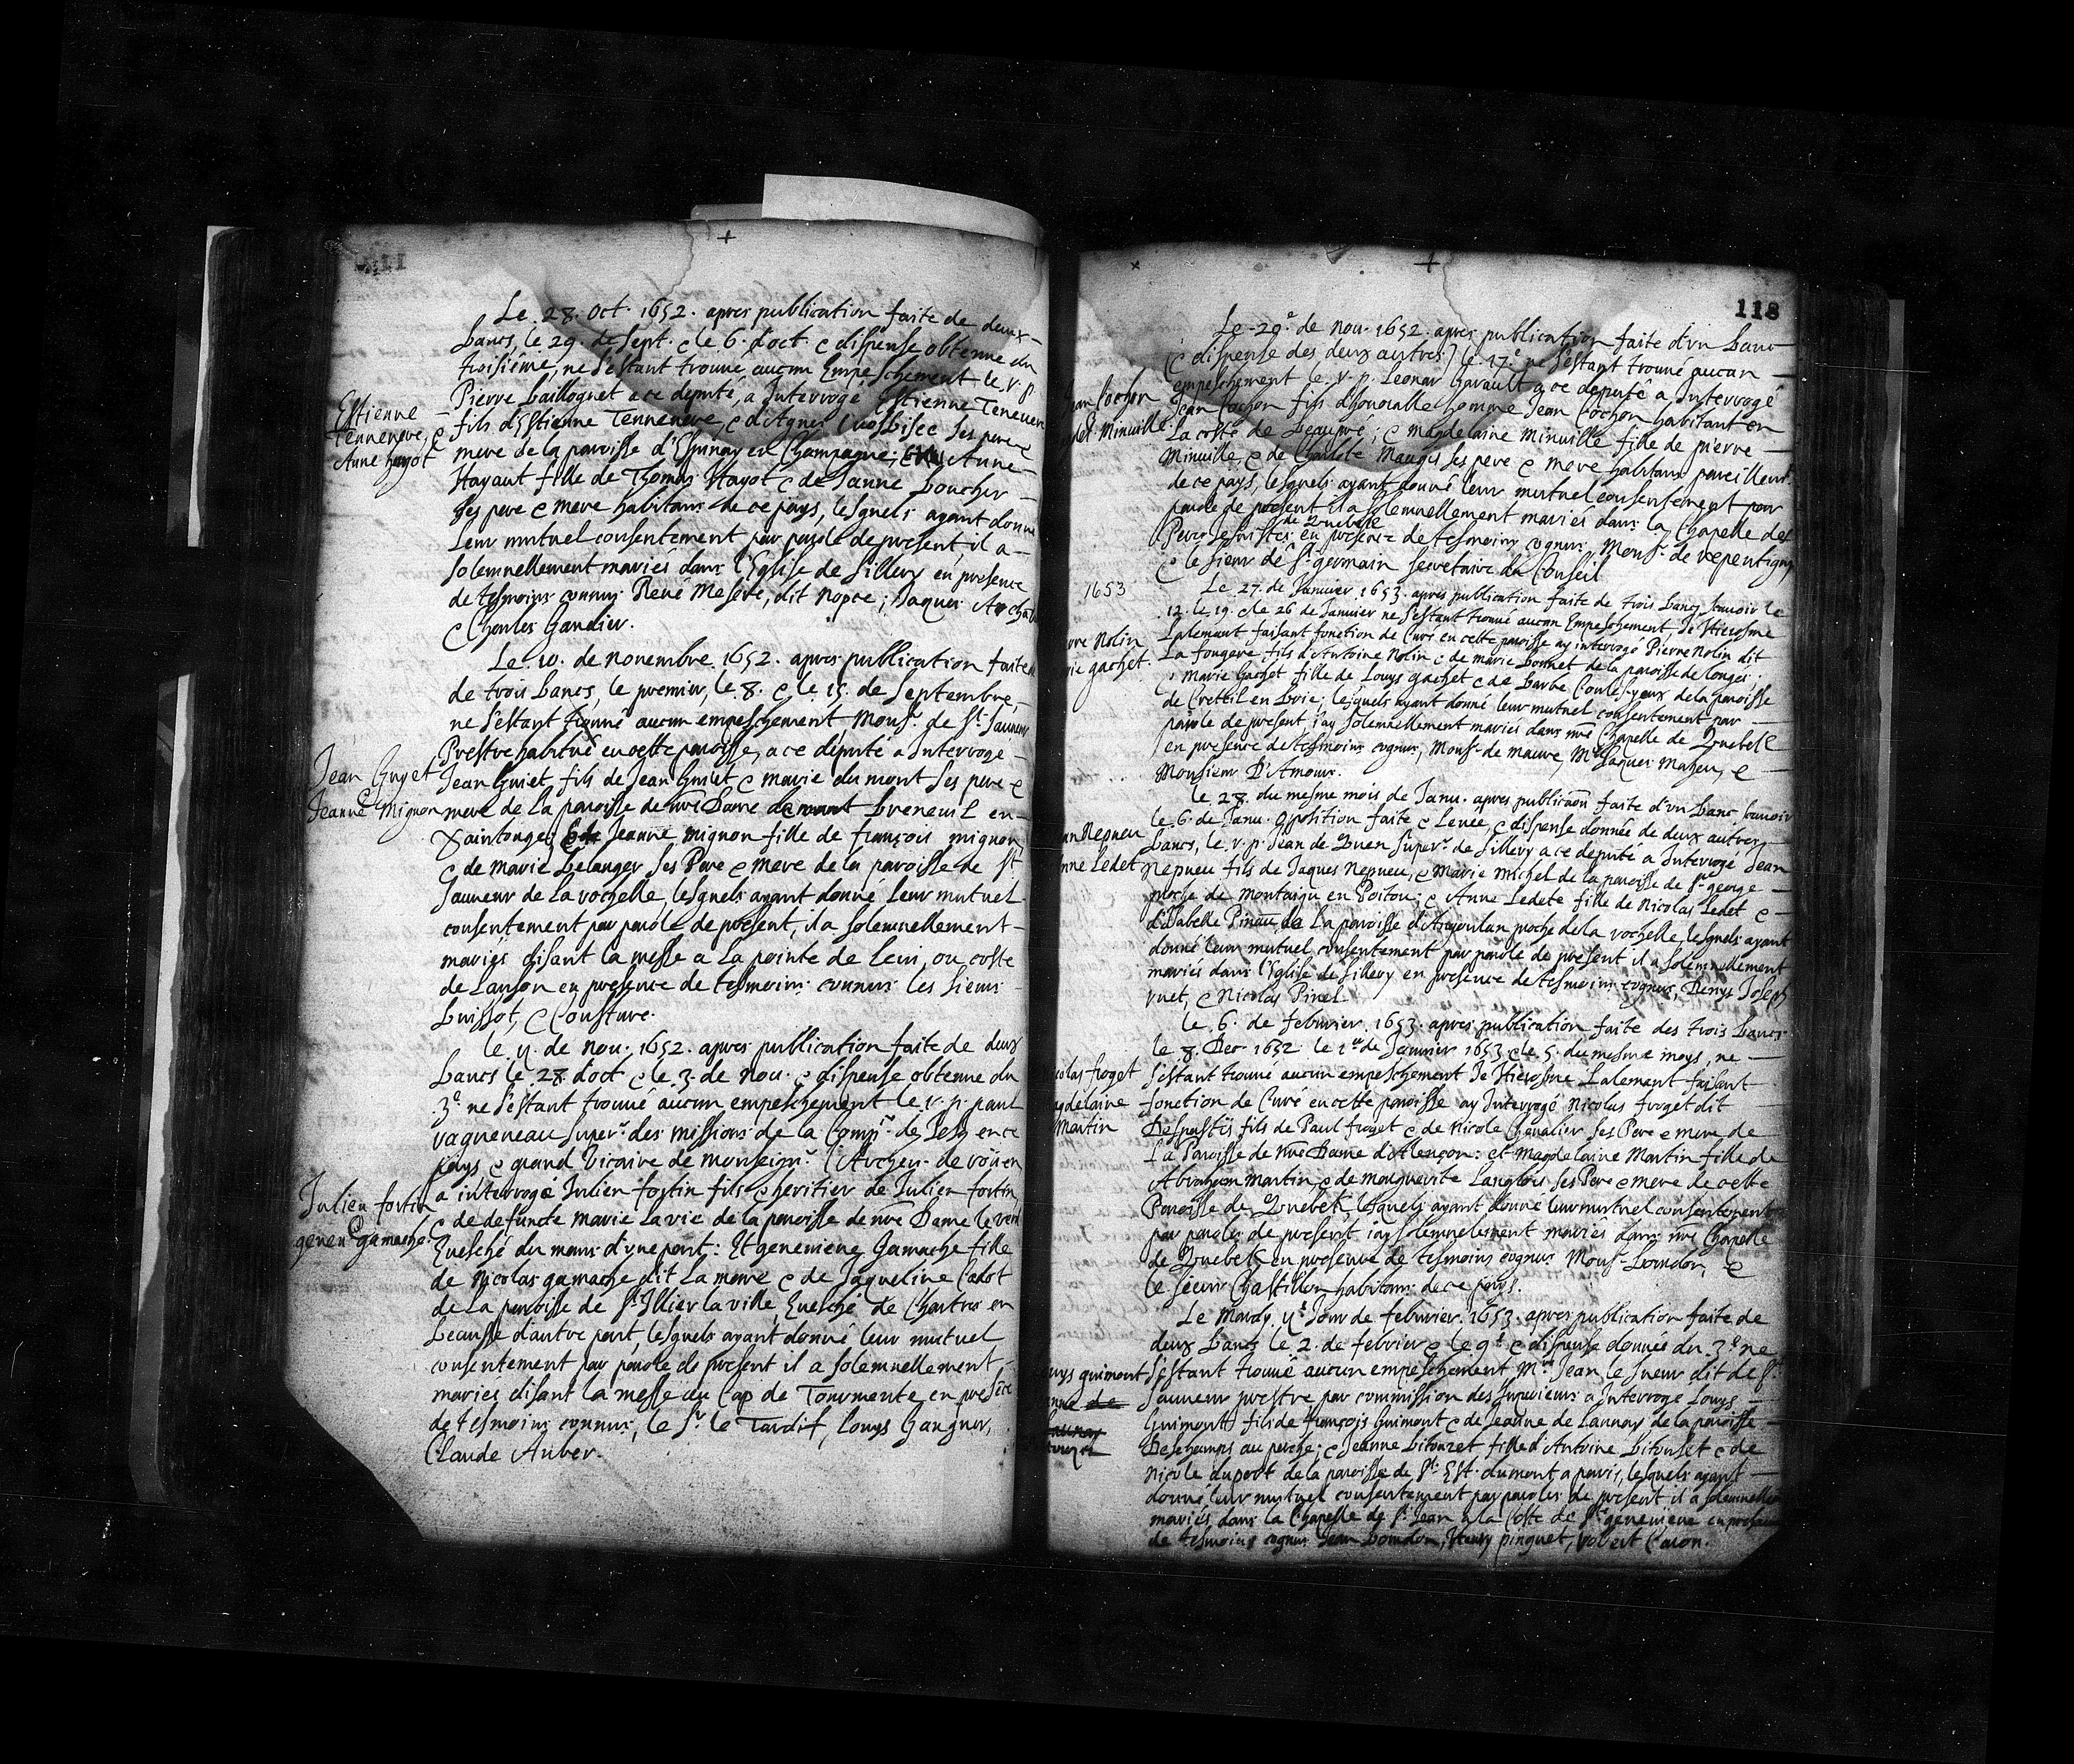 Le 28. Oct. 1652. apres publication faite de deux
bancs, le 29. de sept. & le 6. d'oct. & dispense obtenue du
troisiéme, ne s'estant trouué aucun Empeschement le r. p.
Pierre bailloquet a ce deputé, a Interrogé Estienne
fils d'Estienne Tenneneve, & d'Agnes ses pere &
mere de la paroisse d'Espinay en Champagne; Anne
Hayaut fille de Thomas Hayot & de Janne boucher
ses pere & mere habitans de ce pays, lesquels ayant donné
leur mutuel consentement par parole de present, il a
solemnellement mariés dans l'Eglise de Sillery en presence
de tesmoins connus René Mesere, dit Nopce; Jaques
& Charles Gaudier.
Estienne
Tenneneve, &
Anne hayot
Le 10. de Novembre 1652. apres publication faite
de trois bancs, le premier, le 8. & le 15. de Septembre,
ne s'estant trouué aucun empeschement Monsr. de St. Sauueur
Prestre habitué en cette paroisse, a ce deputé a Interrogé
Jean Guiet fils de Jean Guiet & marie du mont ses pere &
mere de la paroisse de nre Dame breneuil en
Xaintonge; Jeanne mignon fille de françois mignon
& de Marie belanger ses Pere & mere de la paroisse de St
Sauueur de La rochelle, lesquels ayant donné leur mutuel
consentement par parole de present, il a solemnellement
mariés disant la messe a La pointe de Leui, ou coste
de Lauson en presence de tesmoins connus les sieurs
buissot, & Cousture.
Jean Guyet
Jeanne Mignon
le 11. de nou. 1652. apres publication faite de deux
bancs le 28 d'oct & le 3. de Nou. & dispense obtenue du
3e. ne s'estant trouué aucun empeschement le r. p. paul
ragueneau superr. des missions de la de Jesus en ce
pays & grand Vicaire de Monseigr. l'Archeu. de roüen
a interrogé Julien fortin fils & heritier de Julien fortin
& de defuncte marie Lavie de la paroisse de nre Dame le vert
Euesché du mans d'une part: Et geneuieue Gamache fille
de Nicolas gamache dit La mare & de Jaqueline Cadot
de La paroisse de St Illier la ville Euesché de Chartres en
beausse d'autre part, lesquels ayant donné leur mutuel
consentement par parole de present il a solemnellement
mariés disant la messe au Cap de Tourmente en presēce
de tesmoins connus, le Sr. le Tardif, Louys Gangner,
Claude Auber.
Julien fortin
&
geneu gamache
118
Le 20e. de nou. 1652. apres publication faite d'vn banc
(& dispense des deux autres) le 17e. ne s'estant trouué aucun
empeschement le r. p. Leonar Garault a ce deputé a Interrogé
Jean Cochon fils d'honorable homme Jean Cochon habitant en
La coste de beaupré; & magdelaine Minuille fille de pierre
Minuille, & de Mauges ses pere & mere habitans pareillemt.
de ce pays, lesquels ayant donné leur mutuel consentement par
parole de present il a solemnellement mariés dans la Chapelle des
de Quebek
Peres Jesuistes en presence de tesmoins cognus Monsr. de repentigny
& le sieur de St. germain secretaire du Conseil
Cochon
Minuille
1653
Le 27. de Januier 1653. apres publication faite de trois bancs scauoir le
12. le 19. & le 26 de Januier ne s'estant trouué aucun Empeschement, Je Hierosme
Lalemant faisant fonction de Curé en cette paroisse ay interrogé Pierre Nolin dit
La fougere fils d'Antoine Nolin & de marie bonnet de la paroisse de
Marie Gachet fille de Louys gachet & de barbe de la paroisse
de Cretteil en brie; lesquels ayant donné leur mutuel consentement par
parole de present i'ay solemnellement mariés dans nre Chapelle de Quebek
en presence de tesmoins cognus, Monsr. de Mauure, Mre Jaques Maheu, &
Monsieur D'Amours.
Nolin
gachet.
le 28. du mesme mois de Janu. apres publicaōn faite d'vn banc scauoir
le 6. de Janu. opposition faite & Leuee, & dispense donnée de deux autres
bancs, le r. p. Jean de Quen superr. de Sillery a ce deputé a Interrogé Jean
Nepueu fils de Jaques Nepueu, & Marie michel de la paroisse de St george
proche de Montaigu en Poitou; & Anne Ledete fille de Nicolas Ledet &
d'Isabelle Pineau, de La paroisse d'Angoulan proche de la rochelle, lesquels ayant
donné leur mutuel consentement par parole de present il a solemnellement
mariés dans l'Eglise de Sillery en presence de tesmoins cognus, Denys Joseph
ruet, & Nicolas Pinel.
Nepueu
Ledet
le 6. de febvrier 1653. apres publication faite des trois bancs
le 8. Dec. 1652. le 1er de Januier 1653 & le 5. du mesme moys, ne
s'estant trouué aucun empeschement Je Hierosme Lalement faisant
fonction de Curé en cette paroisse ay Interrogé Nicolas froget dit
Despastis fils de Paul froget & de Nicole Chevalier ses Pere & mere de
La Paroisse de nre Dame d'Alençon: et Magdelaine Martin fille de
Abraham martin, & de marguerite Langlois ses Pere & mere de cette
Paroisse de Quebek, lesquels ayant donné leur mutuel consentement
par paroles de present i'ay solemnelement mariés dans nre Chapelle
de Quebek en presence de tesmoins cognus Monsr. bourdon, &
le sieur Chastillon habitans de ce pays.
froget
Martin
Le Mardy 11e Jour de febvrier. 1653. apres publication faite de
deux bancs le 2. de febvrier & le 9e. & dispense donnée du 3e. ne
s'estant trouué aucun empeschement Mre Jean le sueur dit de St.
Sauueur prestre par commission des superieurs a Interrogé Louys
Guimont fils de françois Guimont & de Jeanne de Launay de la paroisse
Deschamps au perche; & Jeanne bitouzet fille d'Antoine bitouset & de
Nicole duport de la paroisse de St. Est. du mont a paris, lesquels ayant
donné leur mutuel consentement par paroles de present il a solemnellement
mariés dans la Chapelle de St. Jean a la Coste de Ste geneuieue en presence
de tesmoins cognus Jean bourdon, Henry pinguet, robert Caron.
guimont
de